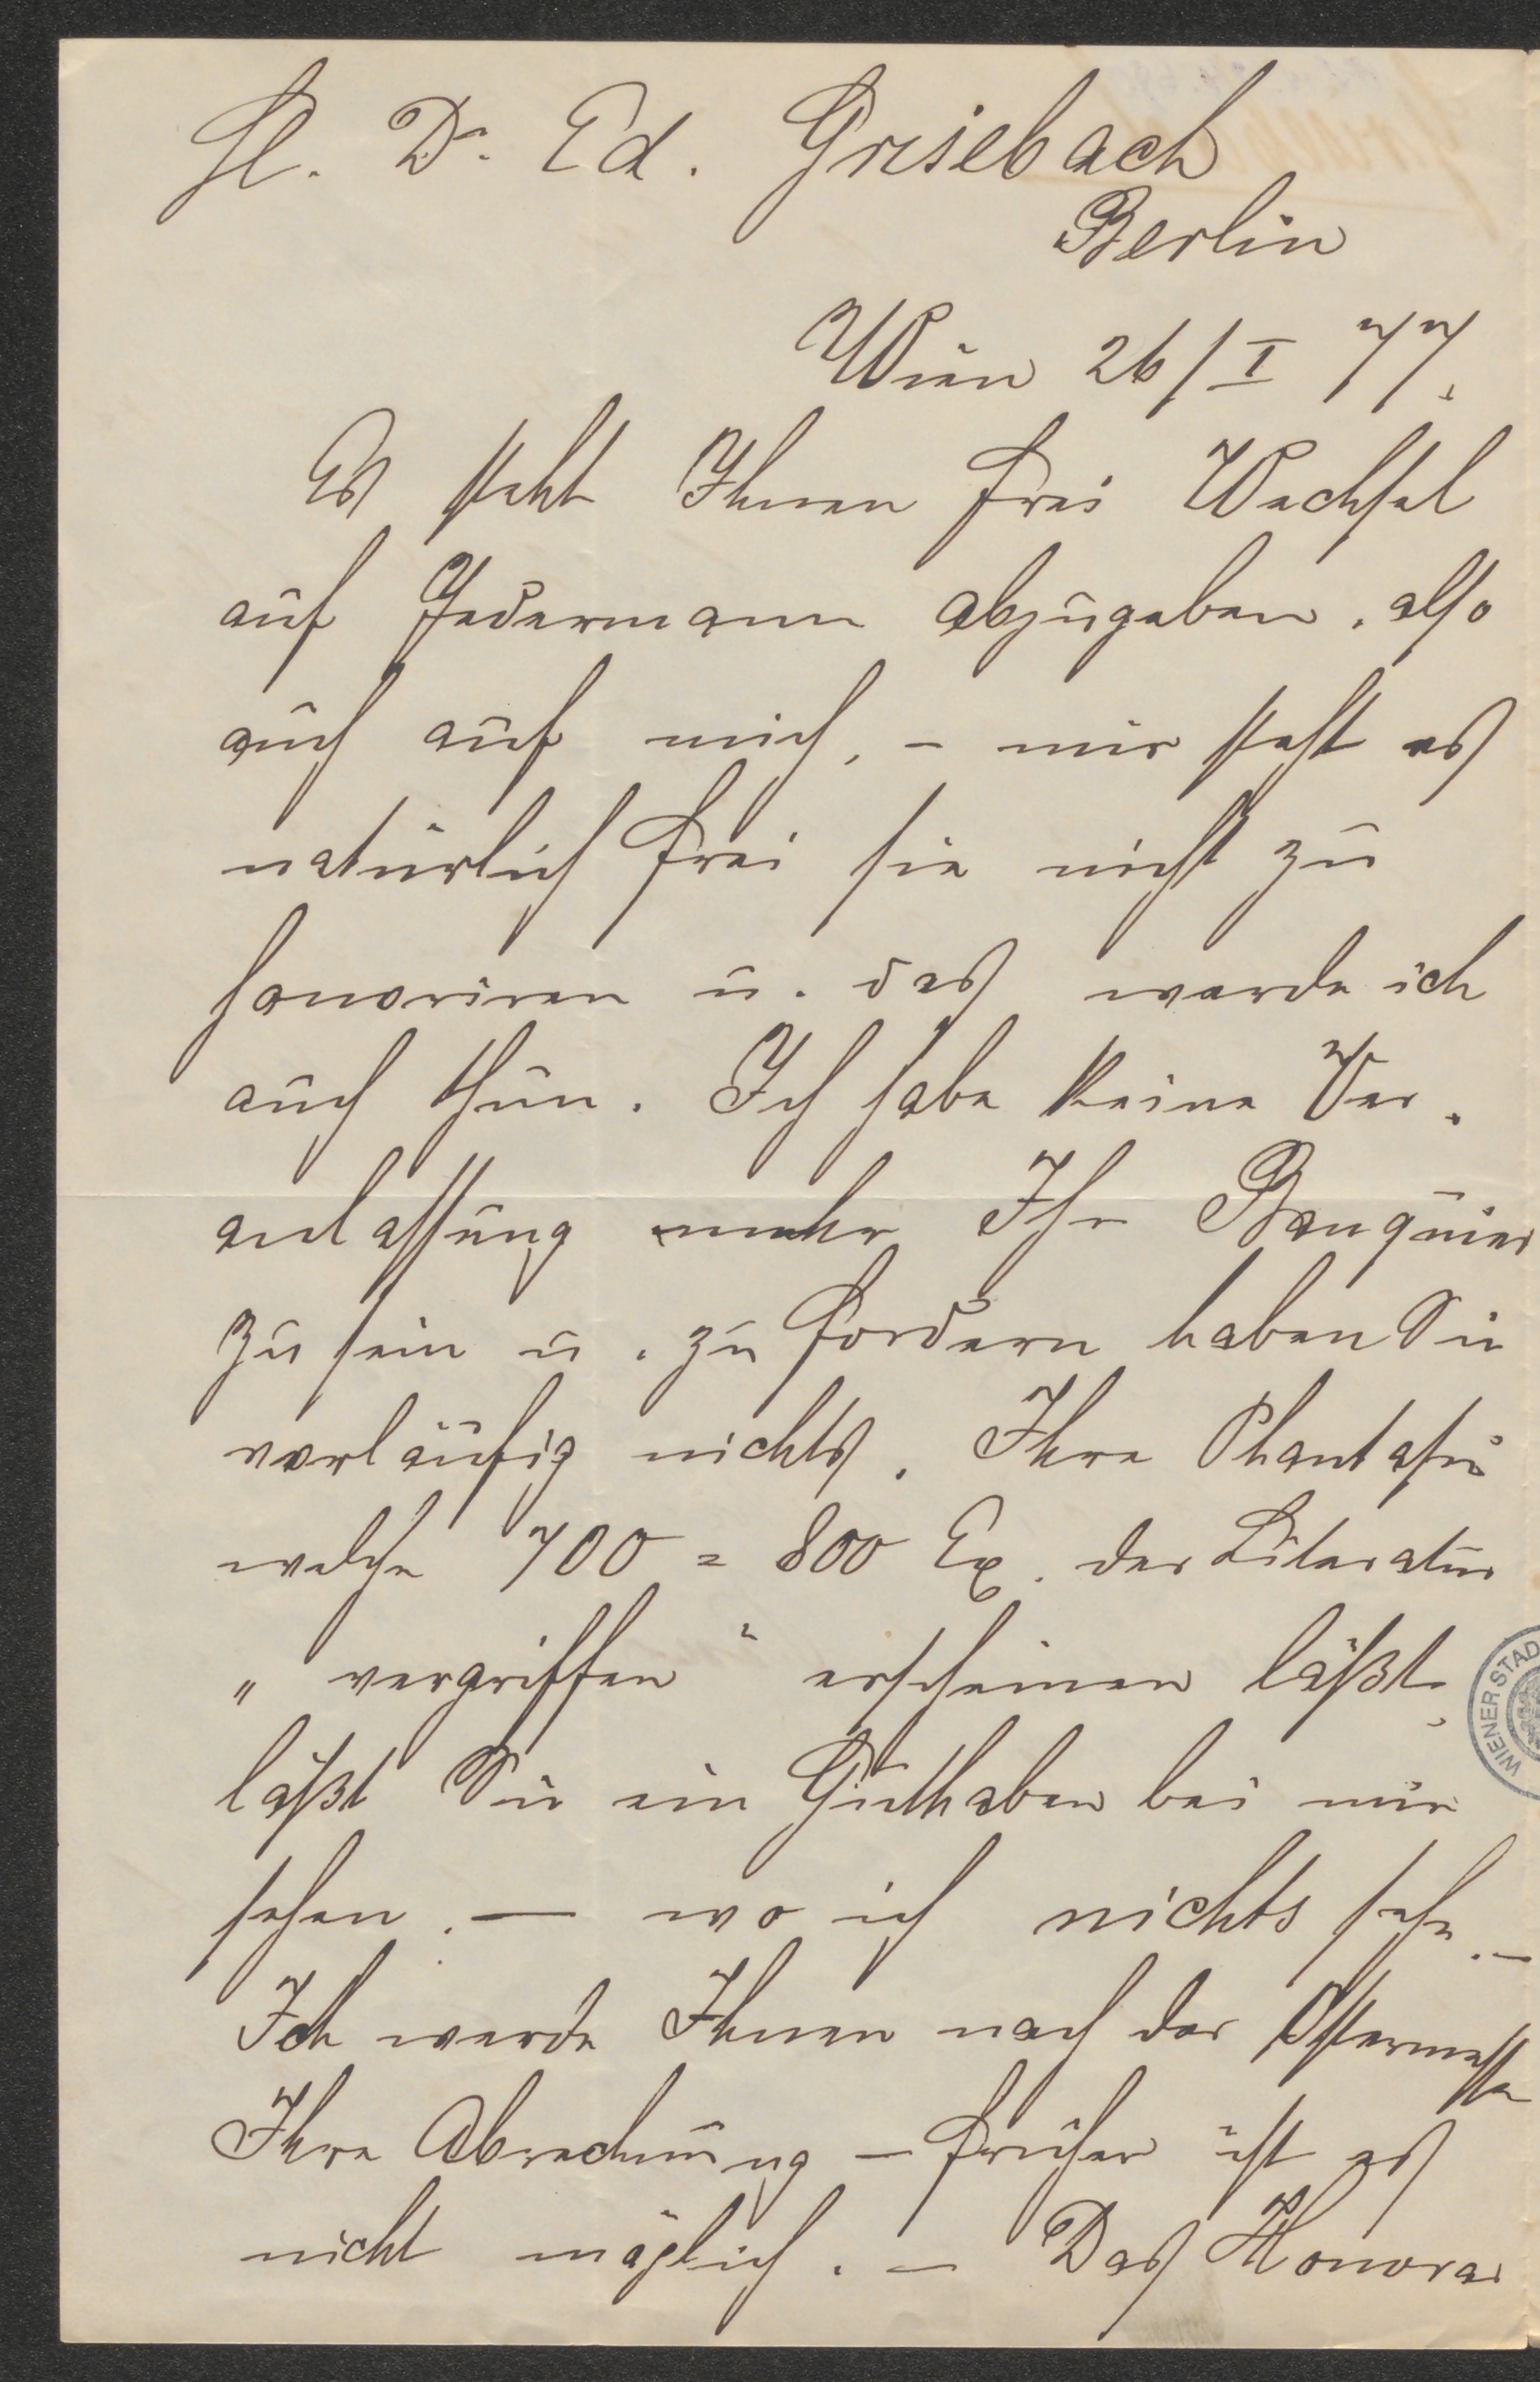 H. Dr. Ed. Grisebach
Berlin
Wien 26/I 77.
Es steht Ihnen frei Wechsel
auf Jedermann abzugeben, also
auch auf mich, – mir steht es
natürlich frei sie nicht zu
honoriren u. das werde ich
auch thun. Ich habe keine Ver-
anlassung mehr Ihr Banquier
zu sein u. zu fordern haben Sie
vorläufig nichts. Ihre Phantasie
welche 700 = 800 Ex. der Literatur
„vergriffen" erscheinen läßt,
läßt Sie ein Guthaben bei mir
sehen. — wo ich nichts sehe. –
Ich werde Ihnen nach der Ostermesse
Ihre Abrechnung – früher ist es
nicht möglich. – Das Honorar
WIENER STAD